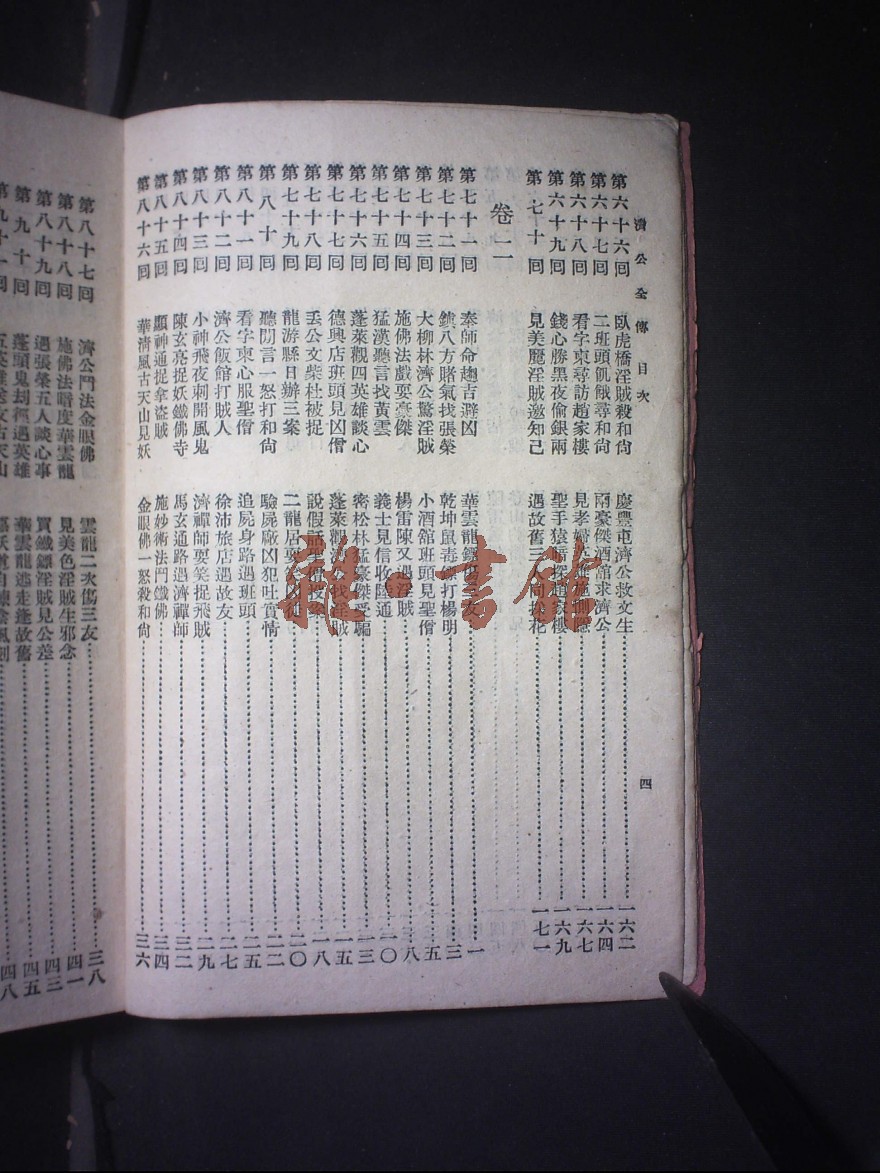 濟公全傳 目次
四
第六十六回 臥虎橋淫賊殺和尙 慶豐屯濟公救文生 一六二
第六十七回 二班頭飢餓尋和尙 兩豪傑酒館求濟公 一六四
第六十八回 看字柬尋訪趙家樓 見孝婦 一六七
第六十九回 錢心勝黑夜偷銀兩 聖手猿 一六九
第七十回 見美麗淫賊邀知己 遇故舊三人同 花 一七一
卷二
第七十一回 奉師命趨吉避凶 華雲龍鏢 友 一
第七十二回 鎭八方賭氣找張榮 乾坤鼠毒 打楊明 三
第七十三回 大柳林濟公驚淫賊 小酒館班頭見聖僧 五
第七十四回 施佛法戲耍豪傑 楊雷陳又遇淫賊 八
第七十五回 猛漢聽言找黃雲 義士見信收陸通 一〇
第七十六回 蓬萊觀四英雄談心 密松林猛豪傑受騙 一三
第七十七回 德興店班頭見凶僧 蓬萊觀濟公找淫賊 一五
第七十八回 丟公文柴杜被捉 說假話聖僧投案 一八
第七十九回 龍游縣日辦三案 二龍居耍笑凶徒 二〇
第八十回 聽閒言一怒打和尙 驗屍廠凶犯吐實情 二二
第八十一回 看字柬心服聖僧 追屍身路遇班頭 二五
第八十二回 濟公飯館打賊人 徐沛旅店遇故友 二七
第八十三回 小神飛夜刺開風鬼 濟禪師耍笑捉飛賊 二九
第八十四回 陳玄亮捉妖鐵佛寺 馬玄通路遇濟禪師 三二
第八十五回 顯神通捉拿盜賊 施妙術法鬥鐵佛 三四
第八十六回 華淸風古天山見妖 金眼佛一怒殺和尙 三六
第八十七回 濟公鬥法金眼佛 雲龍二次傷三友 三八
第八十八回 施佛法暗度華雲龍 見美色淫賊生邪念 四一
第八十九回 遇張榮五人談心事 買鐵鏢淫賊見公差 四三
第九十回 蓬頭鬼劫徑遇英雄 華雲龍逃走逢故舊 四五
第九十一回 五英雄送友古天山 四八
雜·書館